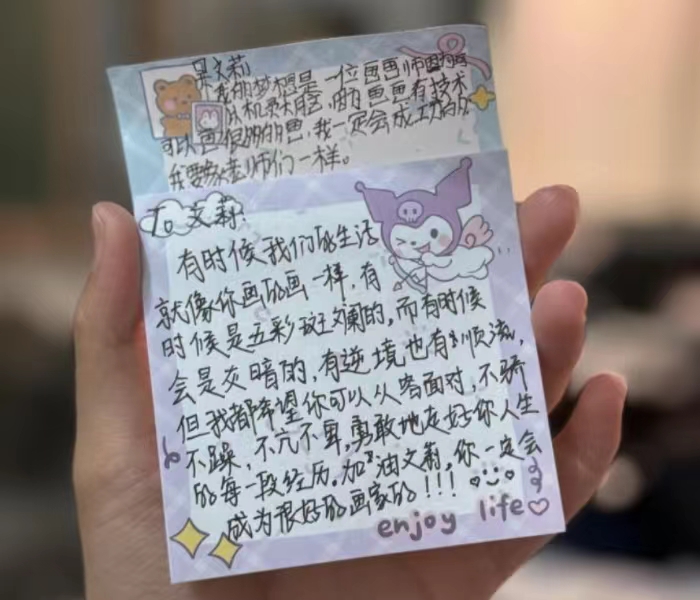 吴文莉
我的梦想是一位画画师因为画
可以画很多的色,我一定会成功的
我要像老师们一样。
To 文莉:
有时候我们的生活
就像你画的画一样,有
时候是五彩斑斓的,而有时候
会是灰暗的,有逆境也有顺流,
但我都希望你可以从容面对,不骄
不躁,不亢不卑,勇敢地走好你人生
的每一段经历。加油文莉,你一定会
成为很好的画家的!!!
enjoy life